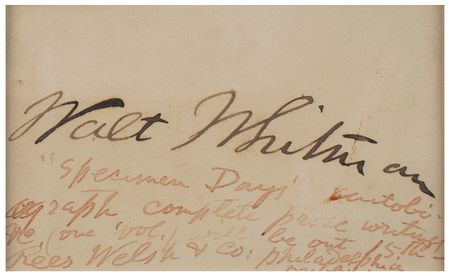 Walt Whitman
"Specimen Days" autobi-
ograph complete prose writings
&c (one vol.) will be out 15th
Rees Welsh & Co: philadelphia